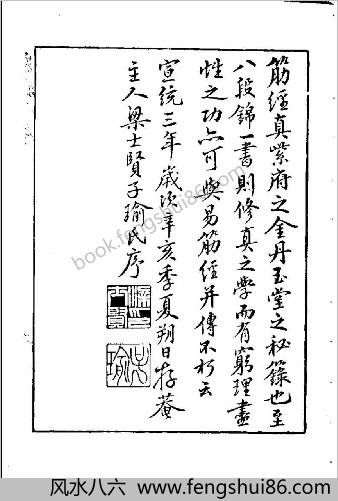 筋經真紫府之金丹玉堂之秘籙也至
八段錦一書則修真之學而有窮理盡
性之功亦可與易筋經并傳不朽云
宣統三年歲次辛亥季夏朔日存菴
主人梁士賢子瑜氏序
book.fengshui86.com
风水八六 - www.fengshui86.com